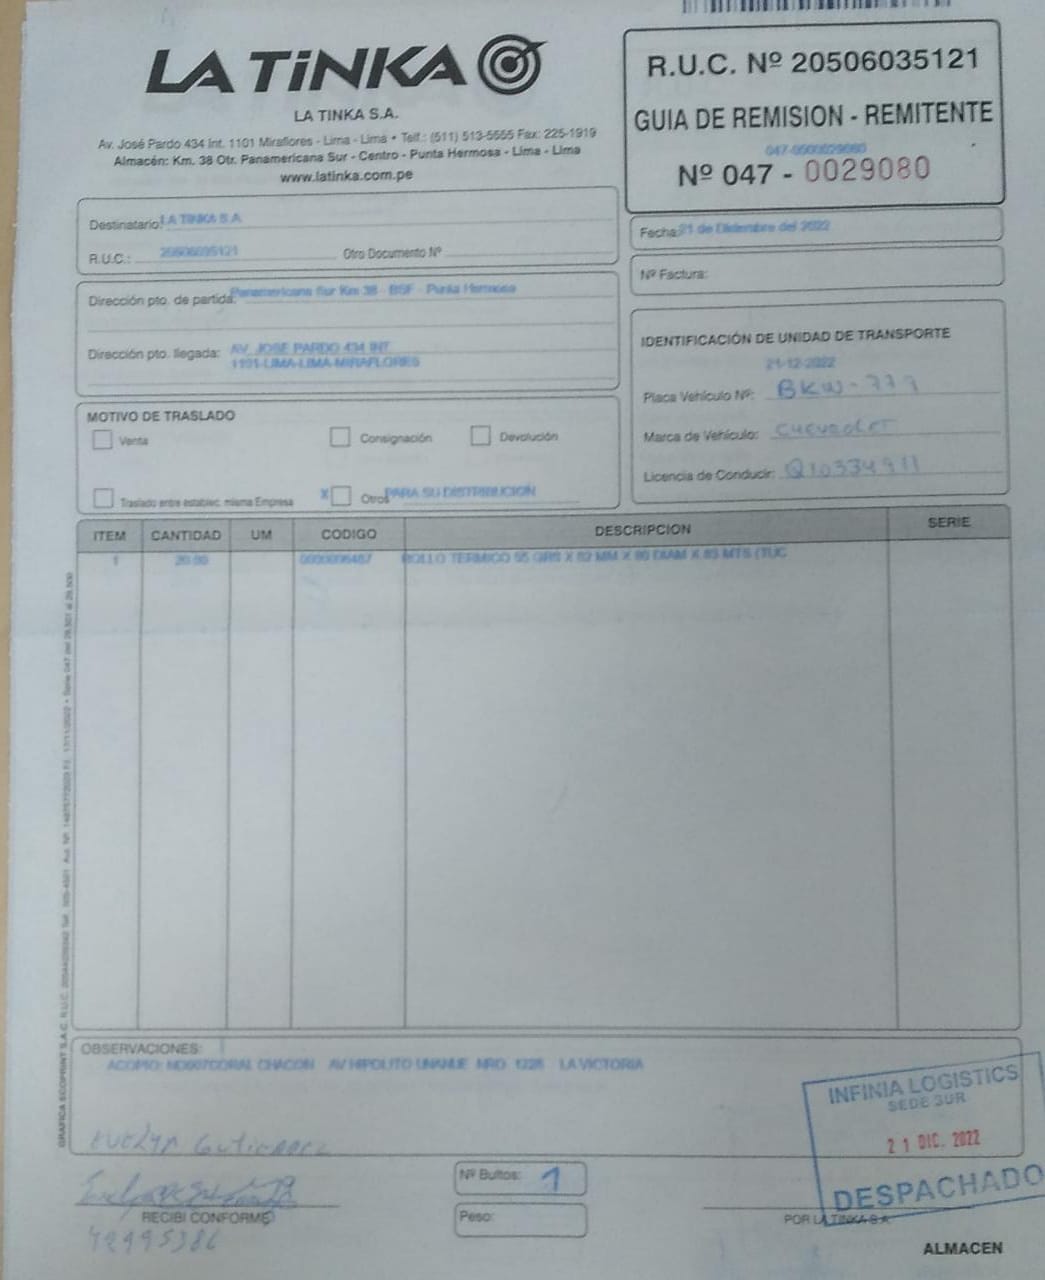 LA TiNKA
LA TINKA S.A.
Av. José Pardo 434 Int. 1101 Miraflores - Lima - Lima • Telf.: (511) 513-5555 Fax: 225-1919
Almacén: Km. 38 Otr. Panamericana Sur - Centro - Punta Hermosa - Lima - Lima
www.latinka.com.pe
R.U.C. Nº 20506035121
GUIA DE REMISION - REMITENTE
047-0000029080
Nº 047 - 0029080
Destinatario: LA TINKA S.A.
R.U.C.: 20506035121 Otro Documento Nº
Fecha: 21 de Diciembre del 2022
Nº Factura:
Dirección pto. de partida: Panamericana Sur Km 38 - BSF - Punta Hermosa
Dirección pto. llegada: AV. JOSE PARDO 434 INT
1101-LIMA-LIMA-MIRAFLORES
IDENTIFICACIÓN DE UNIDAD DE TRANSPORTE
21-12-2022
Placa Vehículo Nº: BKW-779
Marca de Vehículo: CHEVROLET
Licencia de Conducir: Q10334911
MOTIVO DE TRASLADO
Venta Consignación Devolución
Traslado entre establec. misma Empresa X Otros PARA SU DISTRIBUCIÓN
ITEM CANTIDAD UM CODIGO DESCRIPCION SERIE
1 20.00 0000006487 ROLLO TERMICO 55 GRS X 82 MM X 80 DIAM X 83 MTS (TUC
OBSERVACIONES:
ACOPIO: CORAL CHACON AV HIPOLITO UNANUE NRO. 1226 LA VICTORIA
Evelyn Gutierrez
RECIBI CONFORME
Nº Bultos: 1
Peso:
INFINIA LOGISTICS
SEDE SUR
21 DIC. 2022
DESPACHADO
POR LA TINKA S.A.
ALMACEN